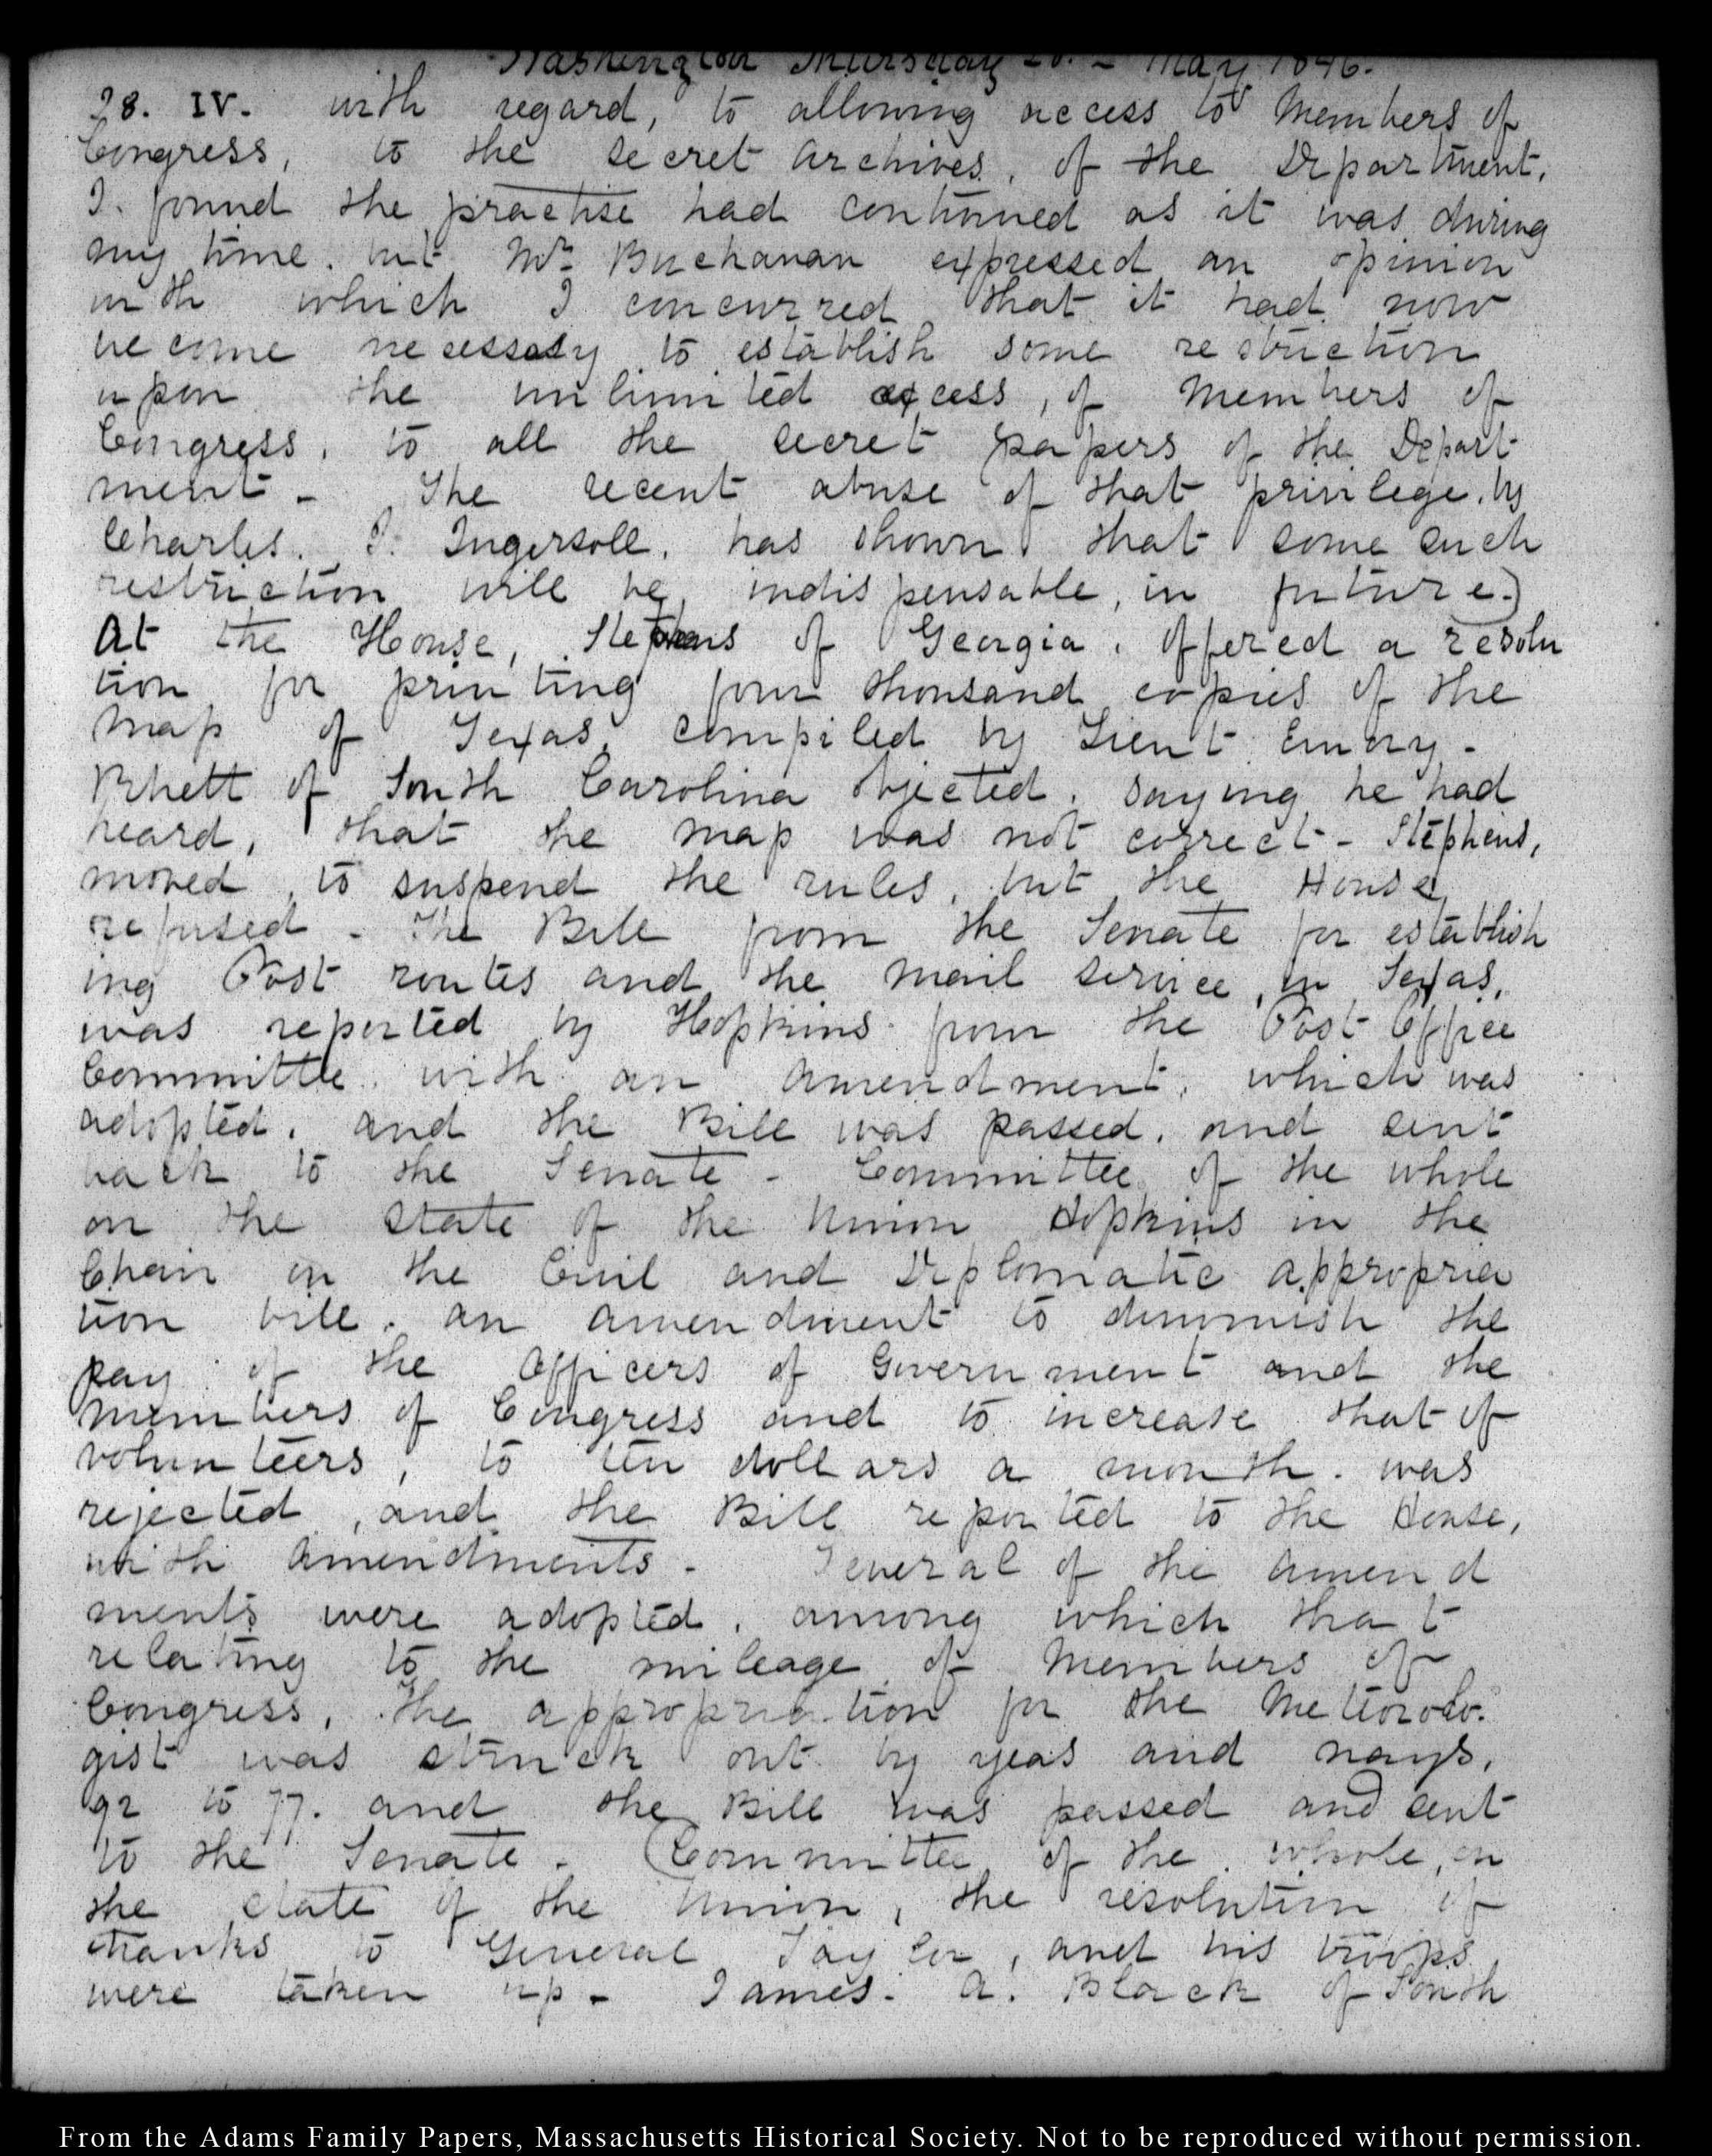 Washington Thursday 28. - May 1846.
28. IV. with regard, to allowing access to Members of
Congress, to the secret archives, of the Department,
I found the practise had continued as it was during
my time. but Mr. Buchanan expressed an opinion
with which I concurred that it had now
become necessary to establish some restriction
upon the unlimited access, of Members of
Congress, to all the secret papers of the Depart
ment - The recent abuse of that privilege, by
Charles. J. Ingersoll, has shown that some such
restriction will be, indispensable, in future.)
At the House, Stephens of Georgia, offered a resolu
tion for printing four thousand copies of the
map of Texas, compiled by Lieut Emory -
Rhett of South Carolina objected, saying he had
heard, that the map was not correct - Stephens,
moved, to suspend the rules, but the House,
refused - The Bill from the Senate for establish
ing Post routes and the mail service, in Texas,
was reported by Hopkins from the Post Office
Committee with an amendment, which was
adopted, and the Bill was passed, and sent
back to the Senate - Committee of the whole
on the state of the Union Hopkins in the
Chair on the Civil and Diplomatic appropria
tion bill, an amendment to diminish the
pay of the Officers of Government and the
members of Congress and to increase that of
volunteers, to ten dollars a month. was
rejected, and the Bill reported to the House,
with amendments - Several of the amend
ments were adopted, among which that
relating to the mileage of Members of
Congress, the appropriation for the Meteorolo-
gist was struck out by yeas and nays,
92 to 77. and the Bill was passed and sent
to the Senate - (Committee of the whole, on
the state of the Union, the resolution of
thanks to General Taylor, and his troops
were taken up - James. A. Black of South
From the Adams Family Papers, Massachusetts Historical Society. Not to be reproduced without permission.